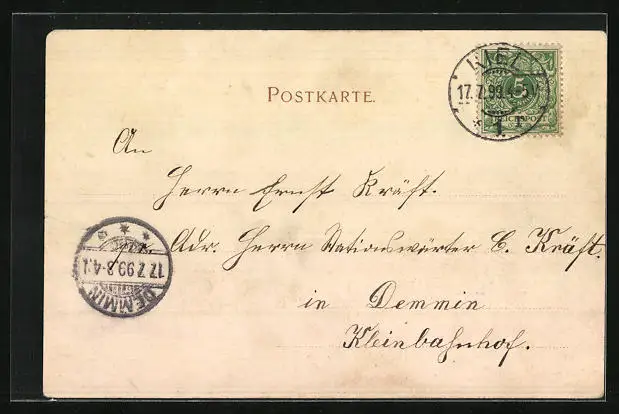 POSTKARTE.
KIEL
17.7.99.4-5N
* 1. *
5
REICHSPOST
An
Herrn Ernst Kräft.
Adr. Herrn Stationswärter C. Kräft.
in Demmin
Kleinbahnhof.
DEMMIN
17.7.99.8-